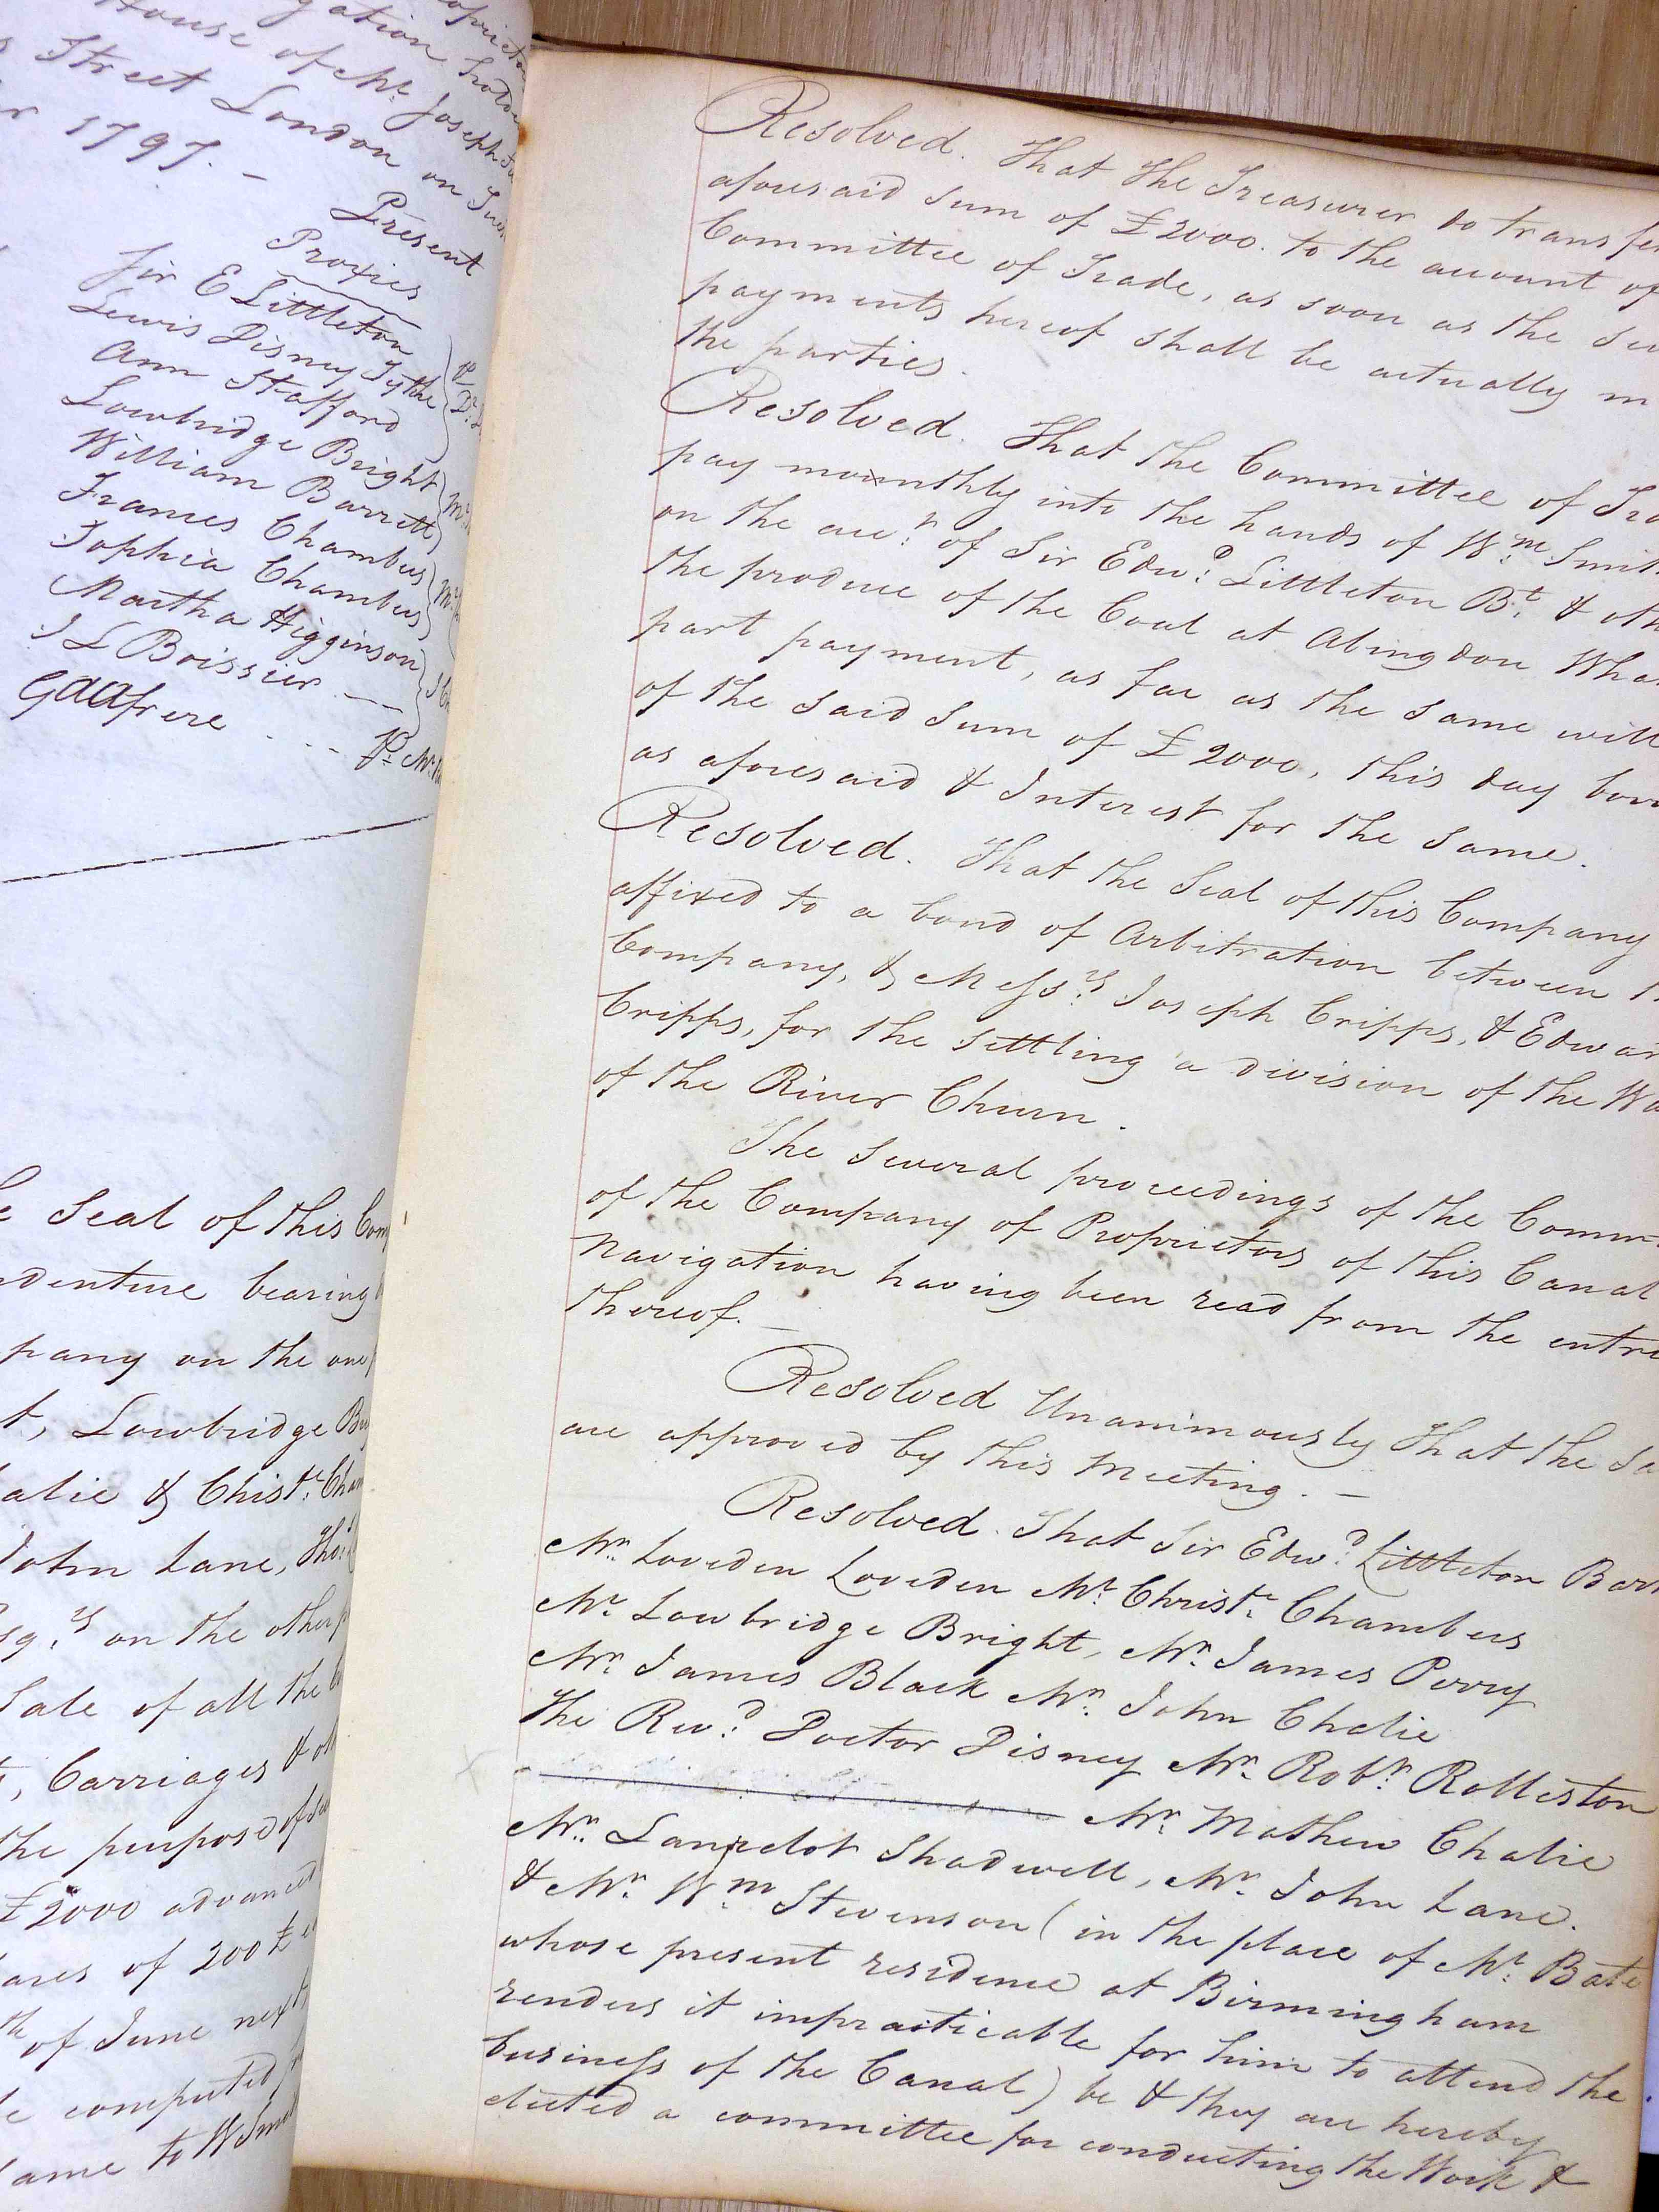 House of Mr. Joseph
Street London on
1797. -
Present
Proxies
Sir E Littleton
Lewis Disney Fytche
Ann Stafford
Lowbridge Bright
William Barrett
Frances Chambers
Sophia Chambers
Martha Higginson
J L Boissier
Seal of this
bearing
on the one
Lowbridge
& Christr.
John Lane, Thos.
on the other
Sale of all the
Carriages &
the purpose of
£2000 advanced
of 200£
of June next
computed
to W
Resolved. That the Treasurer do transfer
aforesaid sum of £2000. to the account of
Committee of Trade, as soon as the
payments hereof shall be actually
the parties.
Resolved. That the Committee of
pay monthly into the hands of Wm. Smith
on the acct. of Sir Edwd. Littleton Bt. &
the produce of the Coal at Abingdon
part payment, as far as the same will
of the said sum of £2000, this day
as aforesaid & Interest for the same.
Resolved. That the Seal of this Company
affixed to a bond of Arbitration between
Company, & Messrs. Joseph Cripps, & Edward
Cripps, for the settling a division of the
of the River Churn.
The several proceedings of the
of the Company of Proprietors of this Canal
Navigation having been read from the
thereof. -
Resolved Unanimously That the
are approved by this Meeting. -
Resolved. That Sir Edwd. Littleton
Mr. Loveden Loveden Mr. Christr. Chambers
Mr. Lowbridge Bright, Mr. James Perry
Mr. James Black Mr. John Chalie
The Revd. Doctor Disney Mr. Robt. Rolleston
Mr. Mathew Chalie
Mr. Lancelot Shadwell, Mr. John Lane.
& Mr. Wm Stevenson (in the place of Mr. Bate
whose present residence at Birmingham
renders it impracticable for him to attend the
business of the Canal) be & they are hereby
elected a committee for conducting the Work &